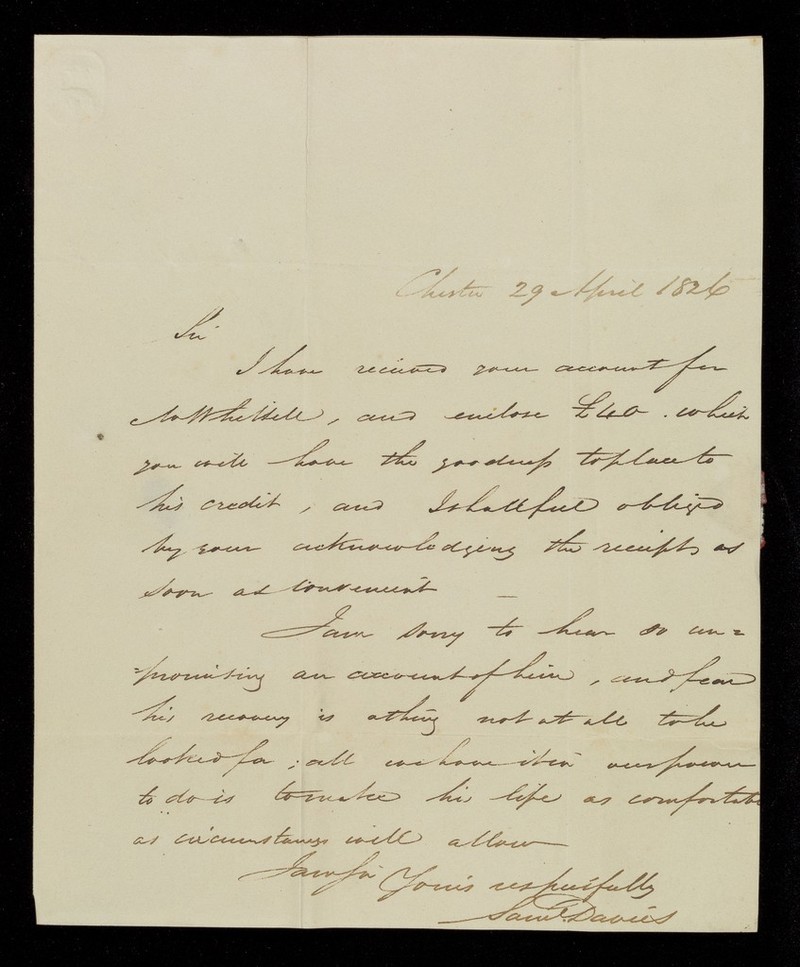 Chester 29 April 1826
Sir
I have received your account for
Mr Whittell, and enclose £40. which
you will have the goodness to place to
his credit, and I shall feel obliged
by your acknowledging the receipt, as
soon as convenient —
I am sorry to hear so un=
=promising an account of him, and fear
his recovery is a thing not at all to be
looked for; all we have it in our power
to do is to make his life as comfortable
as circumstances will allow
I am Sir Yours respectfully
Saml. Davies